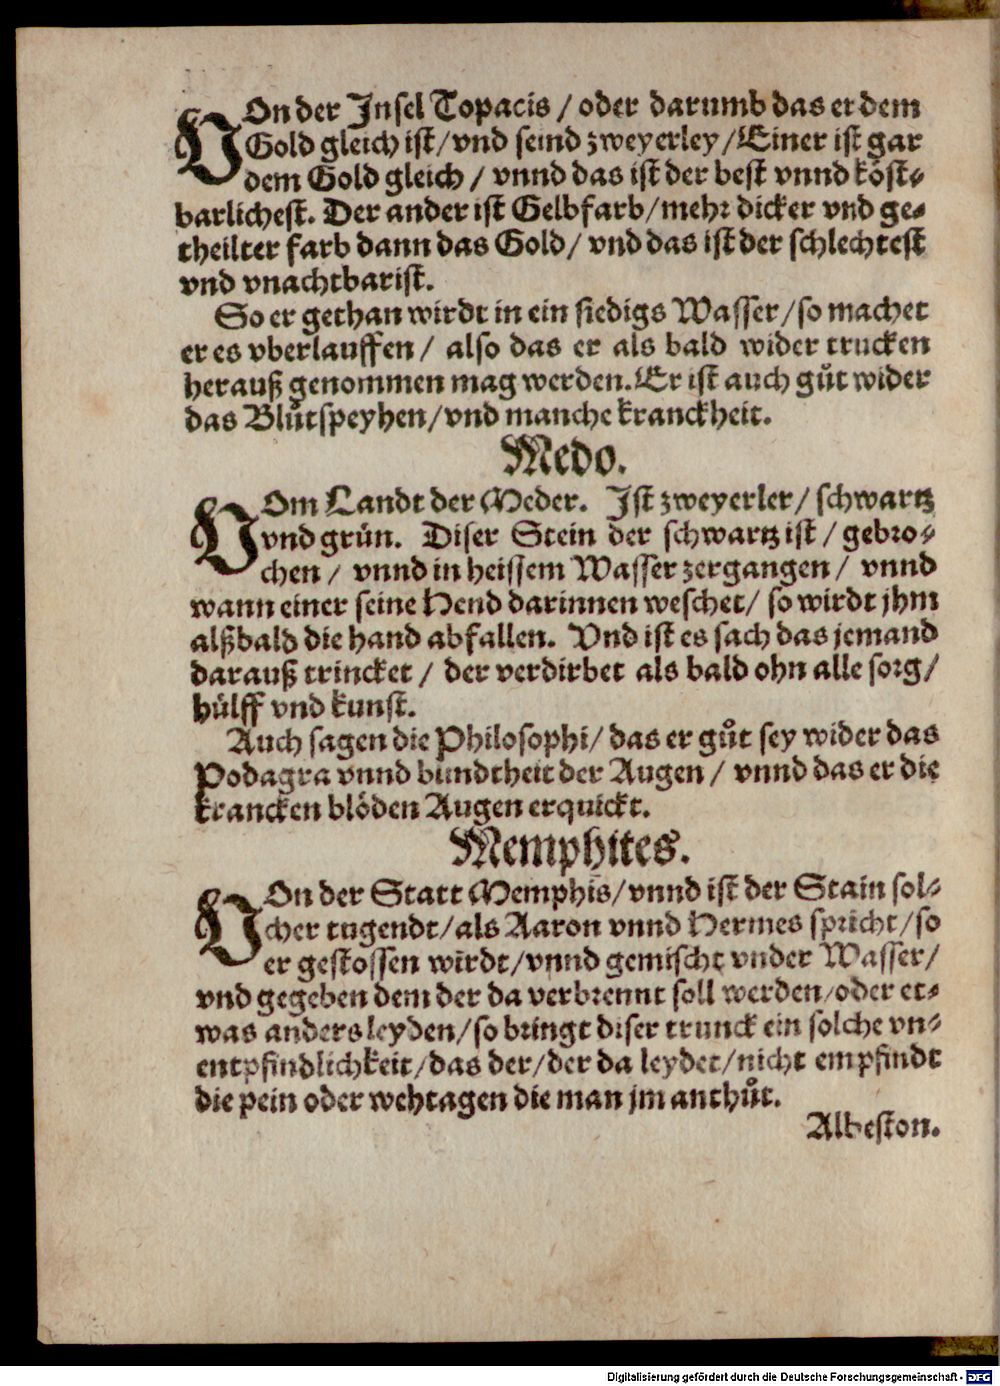 VOn der Jnsel Topacis / oder darumb das er dem
Gold gleich ist / vnd seind zweyerley / Einer ist gar
dem Gold gleich / vnnd das ist der best vnnd köst-
barlichest. Der ander ist Gelbfarb / mehr dicker vnd ge-
theilter farb dann das Gold / vnd das ist der schlechtest
vnd vnachtbarist.
So er gethan wirdt in ein siedigs Wasser / so machet
er es vberlauffen / also das er als bald wider trucken
herauß genommen mag werden. Er ist auch gůt wider
das Blůtspeyhen / vnd manche kranckheit.
Medo.
VOm Landt der Meder. Jst zweyerler / schwartz
vnd grün. Diser Stein der schwartz ist / gebro-
chen / vnnd in heissem Wasser zergangen / vnnd
wann einer seine Hend darinnen weschet / so wirdt jhm
alßbald die hand abfallen. Vnd ist es sach das jemand
darauß trincket / der verdirbet als bald ohn alle sorg /
hülff vnd kunst.
Auch sagen die Philosophi / das er gůt sey wider das
Podagra vnnd blindtheit der Augen / vnnd das er die
krancken blöden Augen erquickt.
Memphites.
VOn der Statt Memphis / vnnd ist der Stain sol-
cher tugendt / als Aaron vnnd Hermes spricht / so
er gestossen wirdt / vnnd gemischt vnder Wasser /
vnd gegeben dem der da verbrennt soll werden / oder et-
was anders leyden / so bringt diser trunck ein solche vn-
entpfindlichkeit / das der / der da leydet / nicht empfindt
die pein oder wehtagen die man jm anthůt.
Albeston.
Digitalisierung gefördert durch die Deutsche Forschungsgemeinschaft - DFG